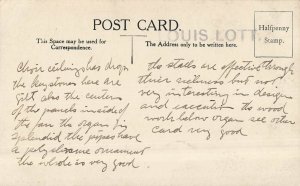 POST CARD.
OUIS LOTT.
This Space may be used for
Correspondence.
The Address only to be written here.
Halfpenny
Stamp.
Choir ceiling has drop
the keystones here are
gilt also the centers
of the panels inside of
the fan the organ is
splendid the pipes have
a polychrome ornament
the whole is very good
the stalls are effective through
their richness but not
very interesting in design
and executed the wood
work below organ see other
card very good